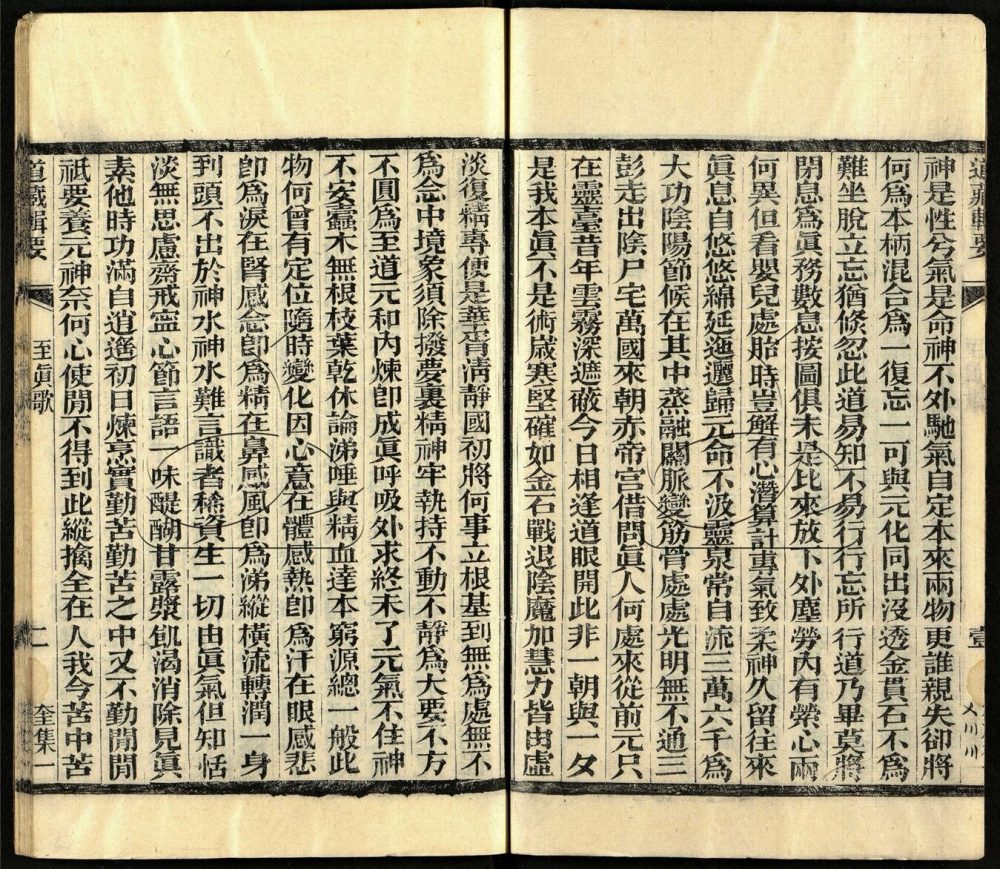 道藏輯要
神是性兮氣是命神不外馳氣自定本來兩物更誰親失卻將
何爲本柄混合爲一復忘一可與元化同出沒透金貫石不爲
難坐脫立忘猶倏忽此道易知不易行行忘所行道乃畢莫將
閉息爲眞務數息按圖俱未是比來放下外塵勞內有縈心兩
何異但看嬰兒處胎時豈解有心潛算計專氣致柔神久留往來
眞息自悠悠綿延迤邐歸元命不汲靈泉常自流三萬六千爲
大功陰陽節候在其中蒸融關脈變筋骨處處光明無不通三
彭走出陰尸宅萬國來朝赤帝宫借問眞人何處來從前元只
在靈臺昔年雲霧深遮蔽今日相逢道眼開此非一朝與一夕
是我本眞不是術歲寒堅確如金石戰退陰魔加慧力皆由虛
淡復精專便是華胥清靜國初將何事立根基到無爲處無不
爲念中境象須除撥夢裏精神牢執持不動不靜爲大要不方
不圓爲至道元和內煉卽成眞呼吸外求終未了元氣不住神
不安蠹木無根枝葉乾休論涕唾與精血達本窮源總一般此
物何曾有定位隨時變化因心意在體感熱卽爲汗在眼感悲
卽爲淚在腎感念卽爲精在鼻感風卽爲涕縱橫流轉潤一身
到頭不出於神水神水難言識者稀資生一切由眞氣但知恬
淡無思慮齋戒寍心節言語一味醍醐甘露漿飢渴消除見眞
素他時功滿自逍遙初日煉烹實勤苦勤苦之中又不勤閒閒
祇要養元神奈何心使閒不得到此縱擒全在人我今苦中苦
道藏輯要
至眞歌
二
奎集一